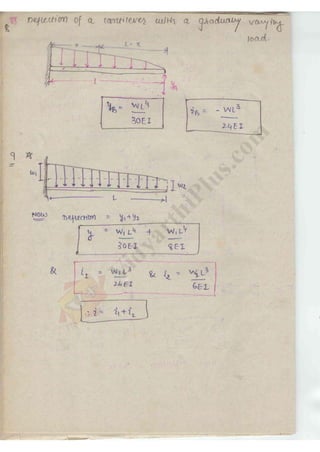 8 Deflection of a cantilever with a gradually varying
load.
x L - x
L
yB
yB = WL⁴/30EI yB = - WL³/24EI
9
w1 w2
L
NOW Deflection = y1+y2
y = W1L⁴/30EI + W1L⁴/8EI
& i1 = W2L³/24EI & i2 = W2L³/6EI
∴ i = i1+i2
VidyarthiPlus.com